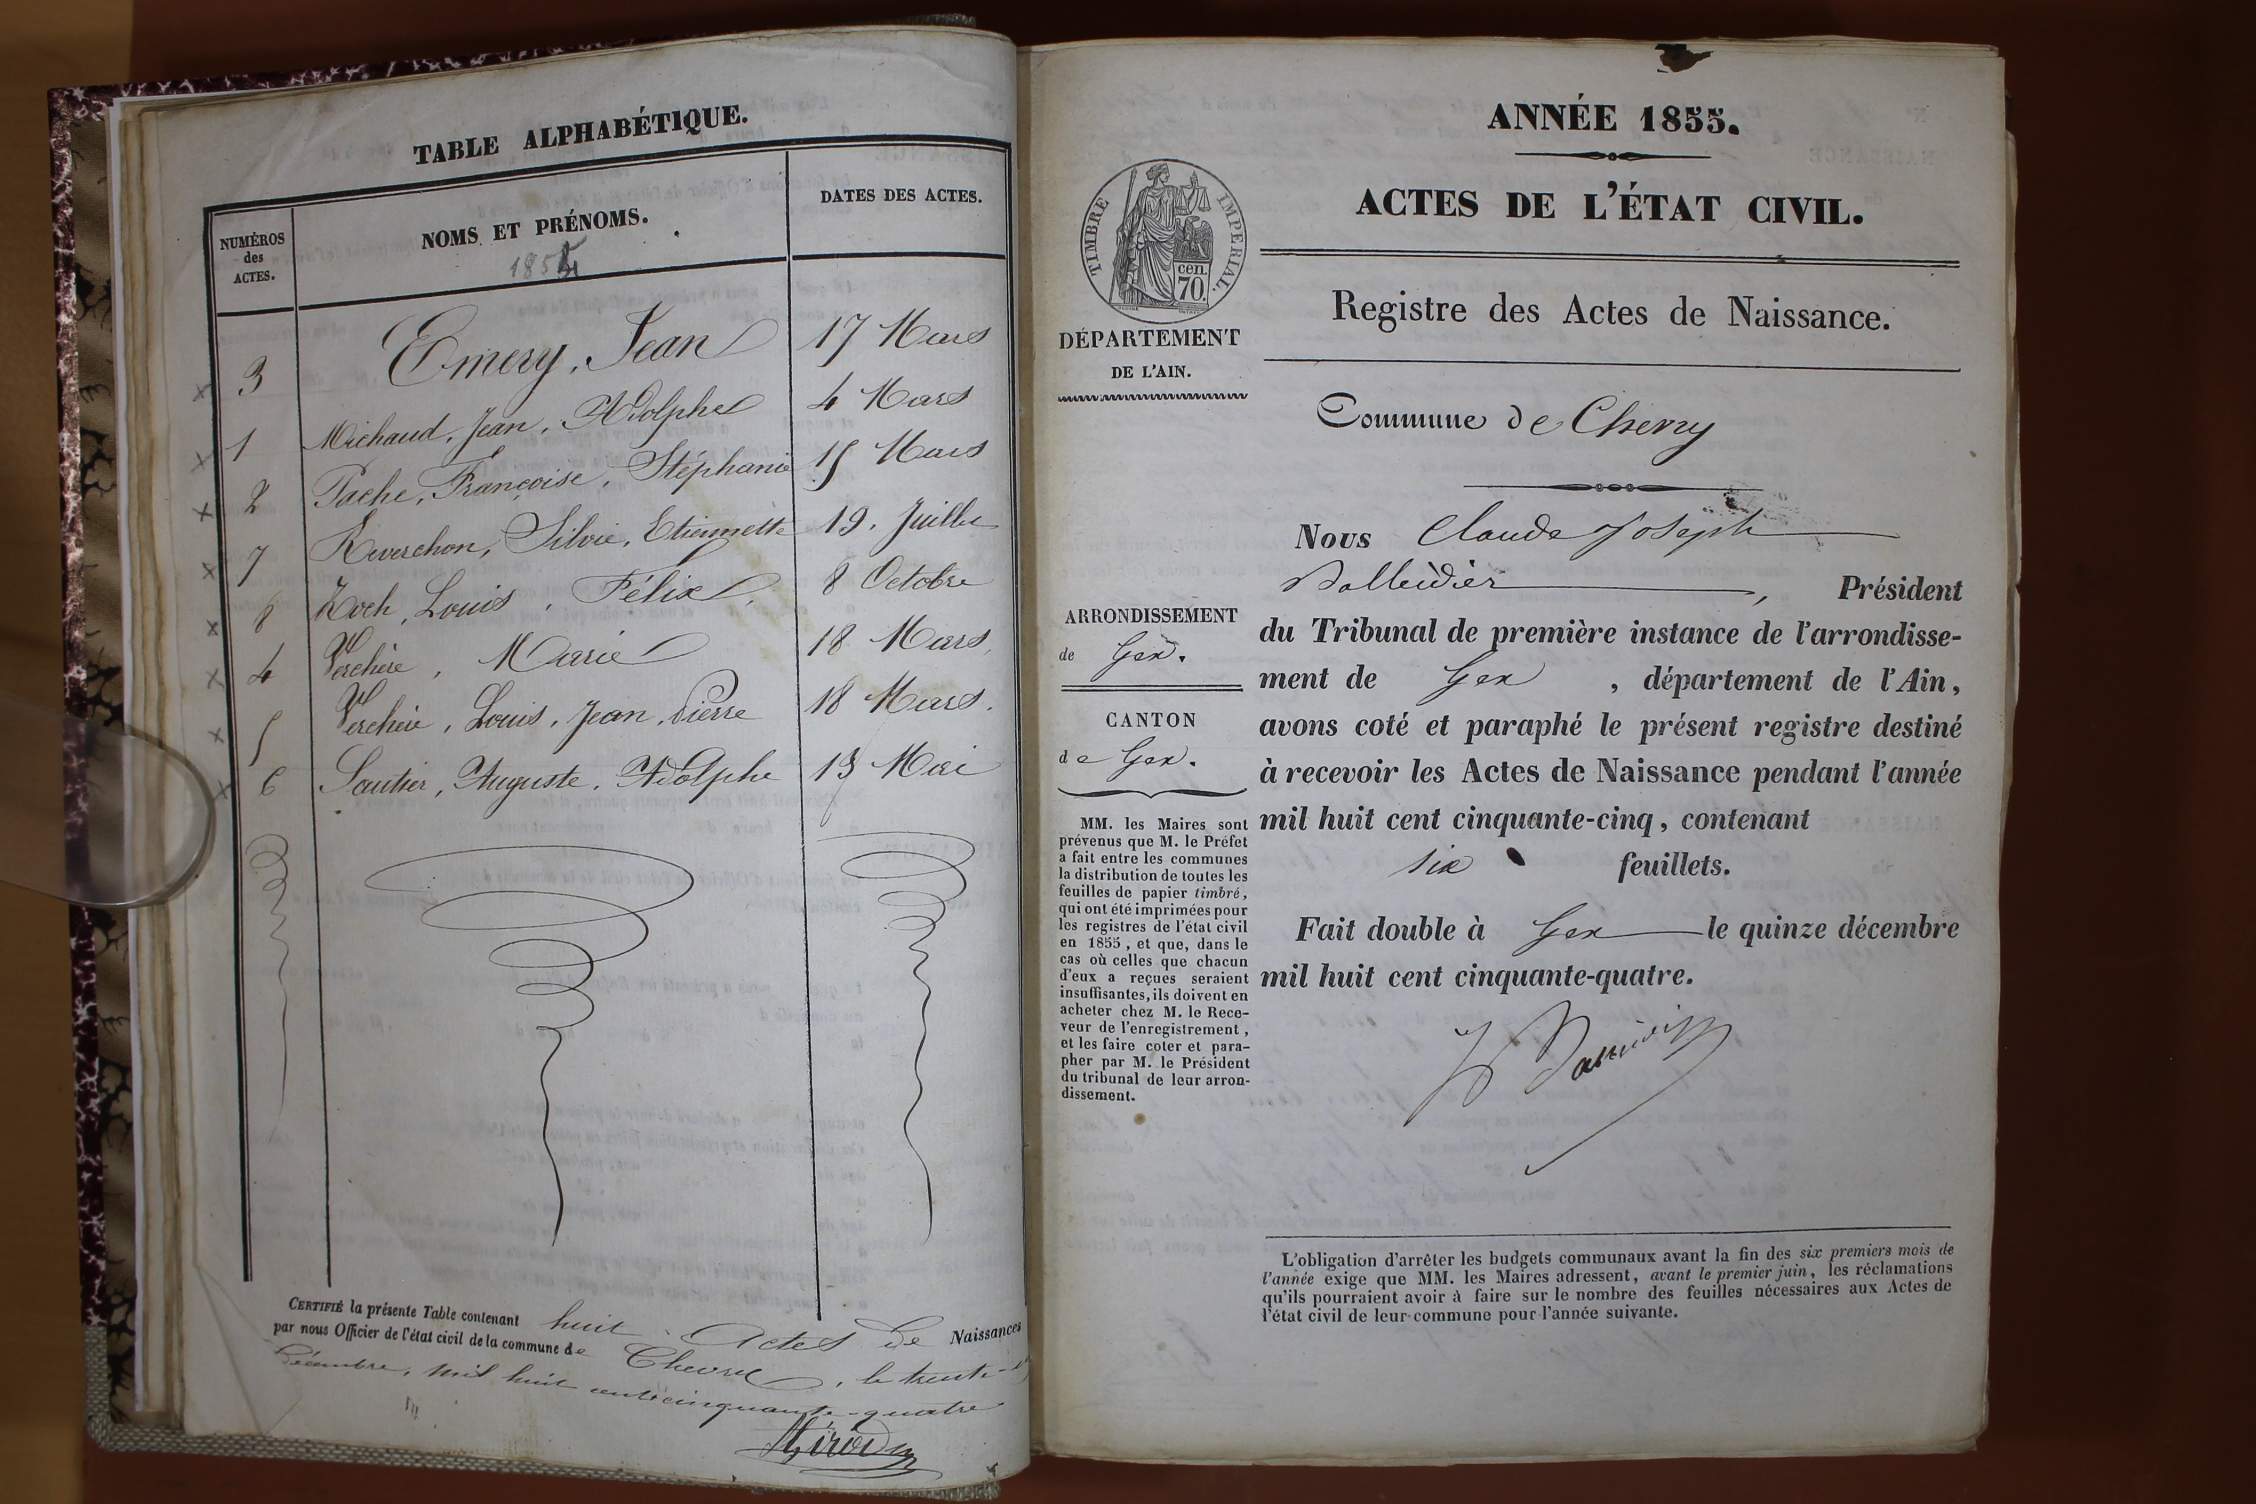 TABLE ALPHABÉTIQUE.
NUMÉROS
des
ACTES.
NOMS ET PRÉNOMS.
1854
DATES DES ACTES.
3 Emery, Jean 17 Mars
1 Michaud, Jean, Adolphe 4 Mars
2 Pache, Françoise, Stéphanie 15 Mars
7 Reverchon, Silvie, Etiennette 19, Juillet
8 Roch, Louis, Félix, 8 Octobre
4 Verchère, Marie 18 Mars,
5 Verchère, Louis, Jean, Pierre 18 Mars.
6 Sautier, Auguste, Adolphe 13 Mai
CERTIFIÉ la présente Table contenant huit Actes de Naissances
par nous Officier de l'état civil de la commune de Chevry, le trente-un
Décembre, mil huit cent cinquante-quatre
ANNÉE 1855.
ACTES DE L'ÉTAT CIVIL.
TIMBRE IMPERIAL.
cen.
70.
Registre des Actes de Naissance.
DÉPARTEMENT
DE L'AIN.
Commune de Chevry
Nous Claude Joseph
Président
du Tribunal de première instance de l'arrondisse-
ment de Gex, département de l'Ain,
avons coté et paraphé le présent registre destiné
à recevoir les Actes de Naissance pendant l'année
mil huit cent cinquante-cinq, contenant
six feuillets.
Fait double à Gex le quinze décembre
mil huit cent cinquante-quatre.
ARRONDISSEMENT
de Gex.
CANTON
de Gex.
MM. les Maires sont
prévenus que M. le Préfet
a fait entre les communes
la distribution de toutes les
feuilles de papier timbré,
qui ont été imprimées pour
les registres de l'état civil
en 1855, et que, dans le
cas où celles que chacun
d'eux a reçues seraient
insuffisantes, ils doivent en
acheter chez M. le Rece-
veur de l'enregistrement,
et les faire coter et para-
pher par M. le Président
du tribunal de leur arron-
dissement.
L'obligation d'arrêter les budgets communaux avant la fin des six premiers mois de
l'année exige que MM. les Maires adressent, avant le premier juin, les réclamations
qu'ils pourraient avoir à faire sur le nombre des feuilles nécessaires aux Actes de
l'état civil de leur commune pour l'année suivante.